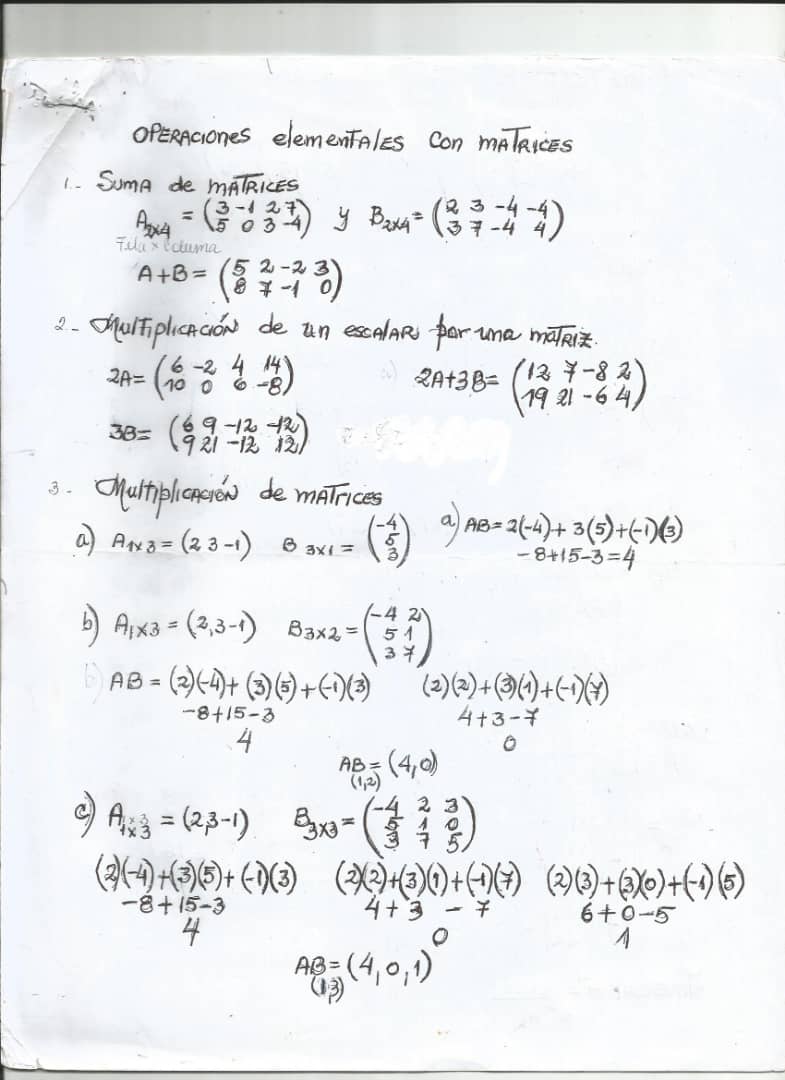 OPERACIONES elementALES Con MATRICES
1.- SUMA de MATRICES
A2x4 = (3 -1 2 7 / 5 0 3 -4) y B2x4 = (2 3 -4 -4 / 3 7 -4 4)
Fila x Columa
A+B = (5 2 -2 3 / 8 7 -1 0)
2.- Multiplicación de un escalar por una matriz.
2A = (6 -2 4 14 / 10 0 6 -8) a) 2A+3B = (12 7 -8 2 / 19 21 -6 4)
3B = (6 9 -12 -12 / 9 21 -12 12)
3.- Multiplicación de matrices
a) A1x3 = (2 3 -1) B 3x1 = (-4 / 5 / 3) a) AB = 2(-4) + 3(5) + (-1)(3)
-8+15-3=4
b) A1x3 = (2,3-1) B3x2 = (-4 2 / 5 1 / 3 7)
b) AB = (2)(-4) + (3)(5) + (-1)(3) (2)(2) + (3)(1) + (-1)(7)
-8+15-3 4+3-7
4 0
AB = (4,0)
(1,2)
c) A1x3 = (2,3-1) B3x3 = (-4 2 3 / 5 1 0 / 3 7 5)
1x3
(2)(-4) + (3)(5) + (-1)(3) (2)(2) + (3)(1) + (-1)(7) (2)(3) + (3)(0) + (-1)(5)
-8+15-3 4+3 - 7 6+0-5
4 0 1
AB = (4,0,1)
(1,3)